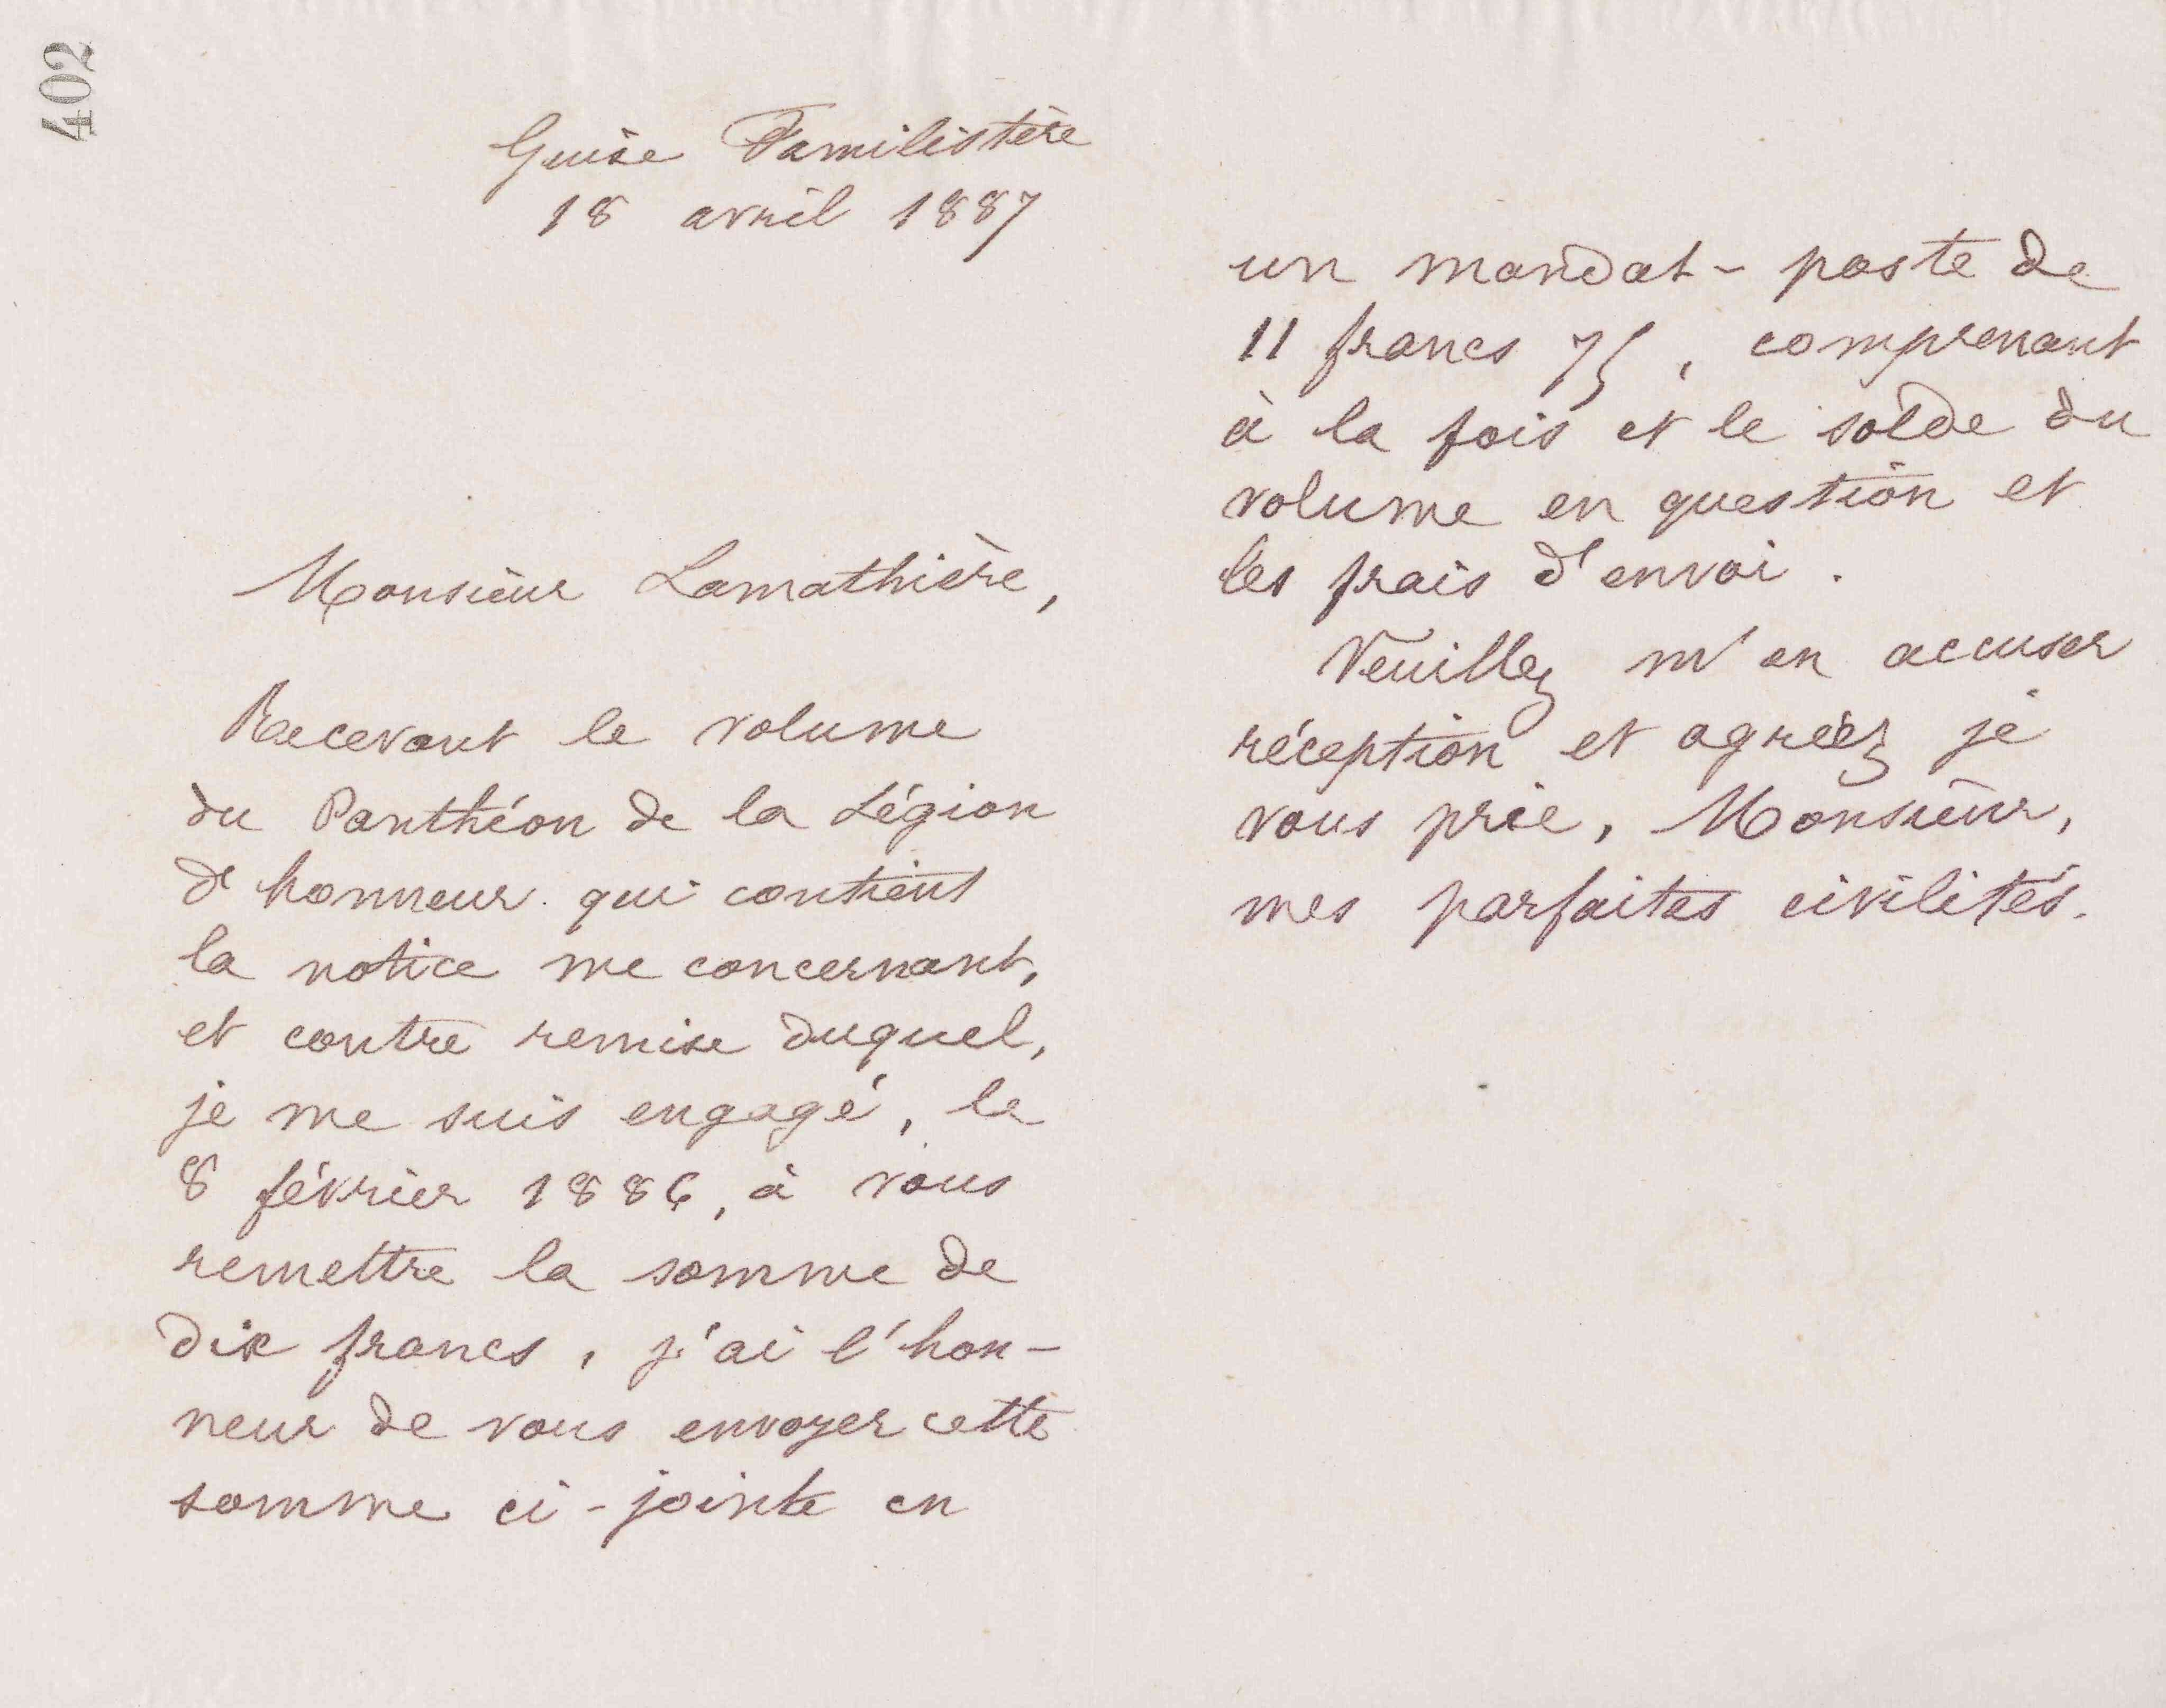 402
Guise Familistère
18 avril 1887
Monsieur Lamathière,
Recevant le volume
du Panthéon de la Légion
d'honneur qui contient
la notice me concernant,
et contre remise duquel,
je me suis engagé, le
8 février 1886, à vous
remettre la somme de
dix francs, j'ai l'hon-
neur de vous envoyer cette
somme ci-jointe en
un mandat-poste de
11 francs 75, comprenant
à la fois et le solde du
volume en question et
les frais d'envoi.
Veuillez m'en accuser
réception et agréez je
vous prie, Monsieur,
mes parfaites civilités.